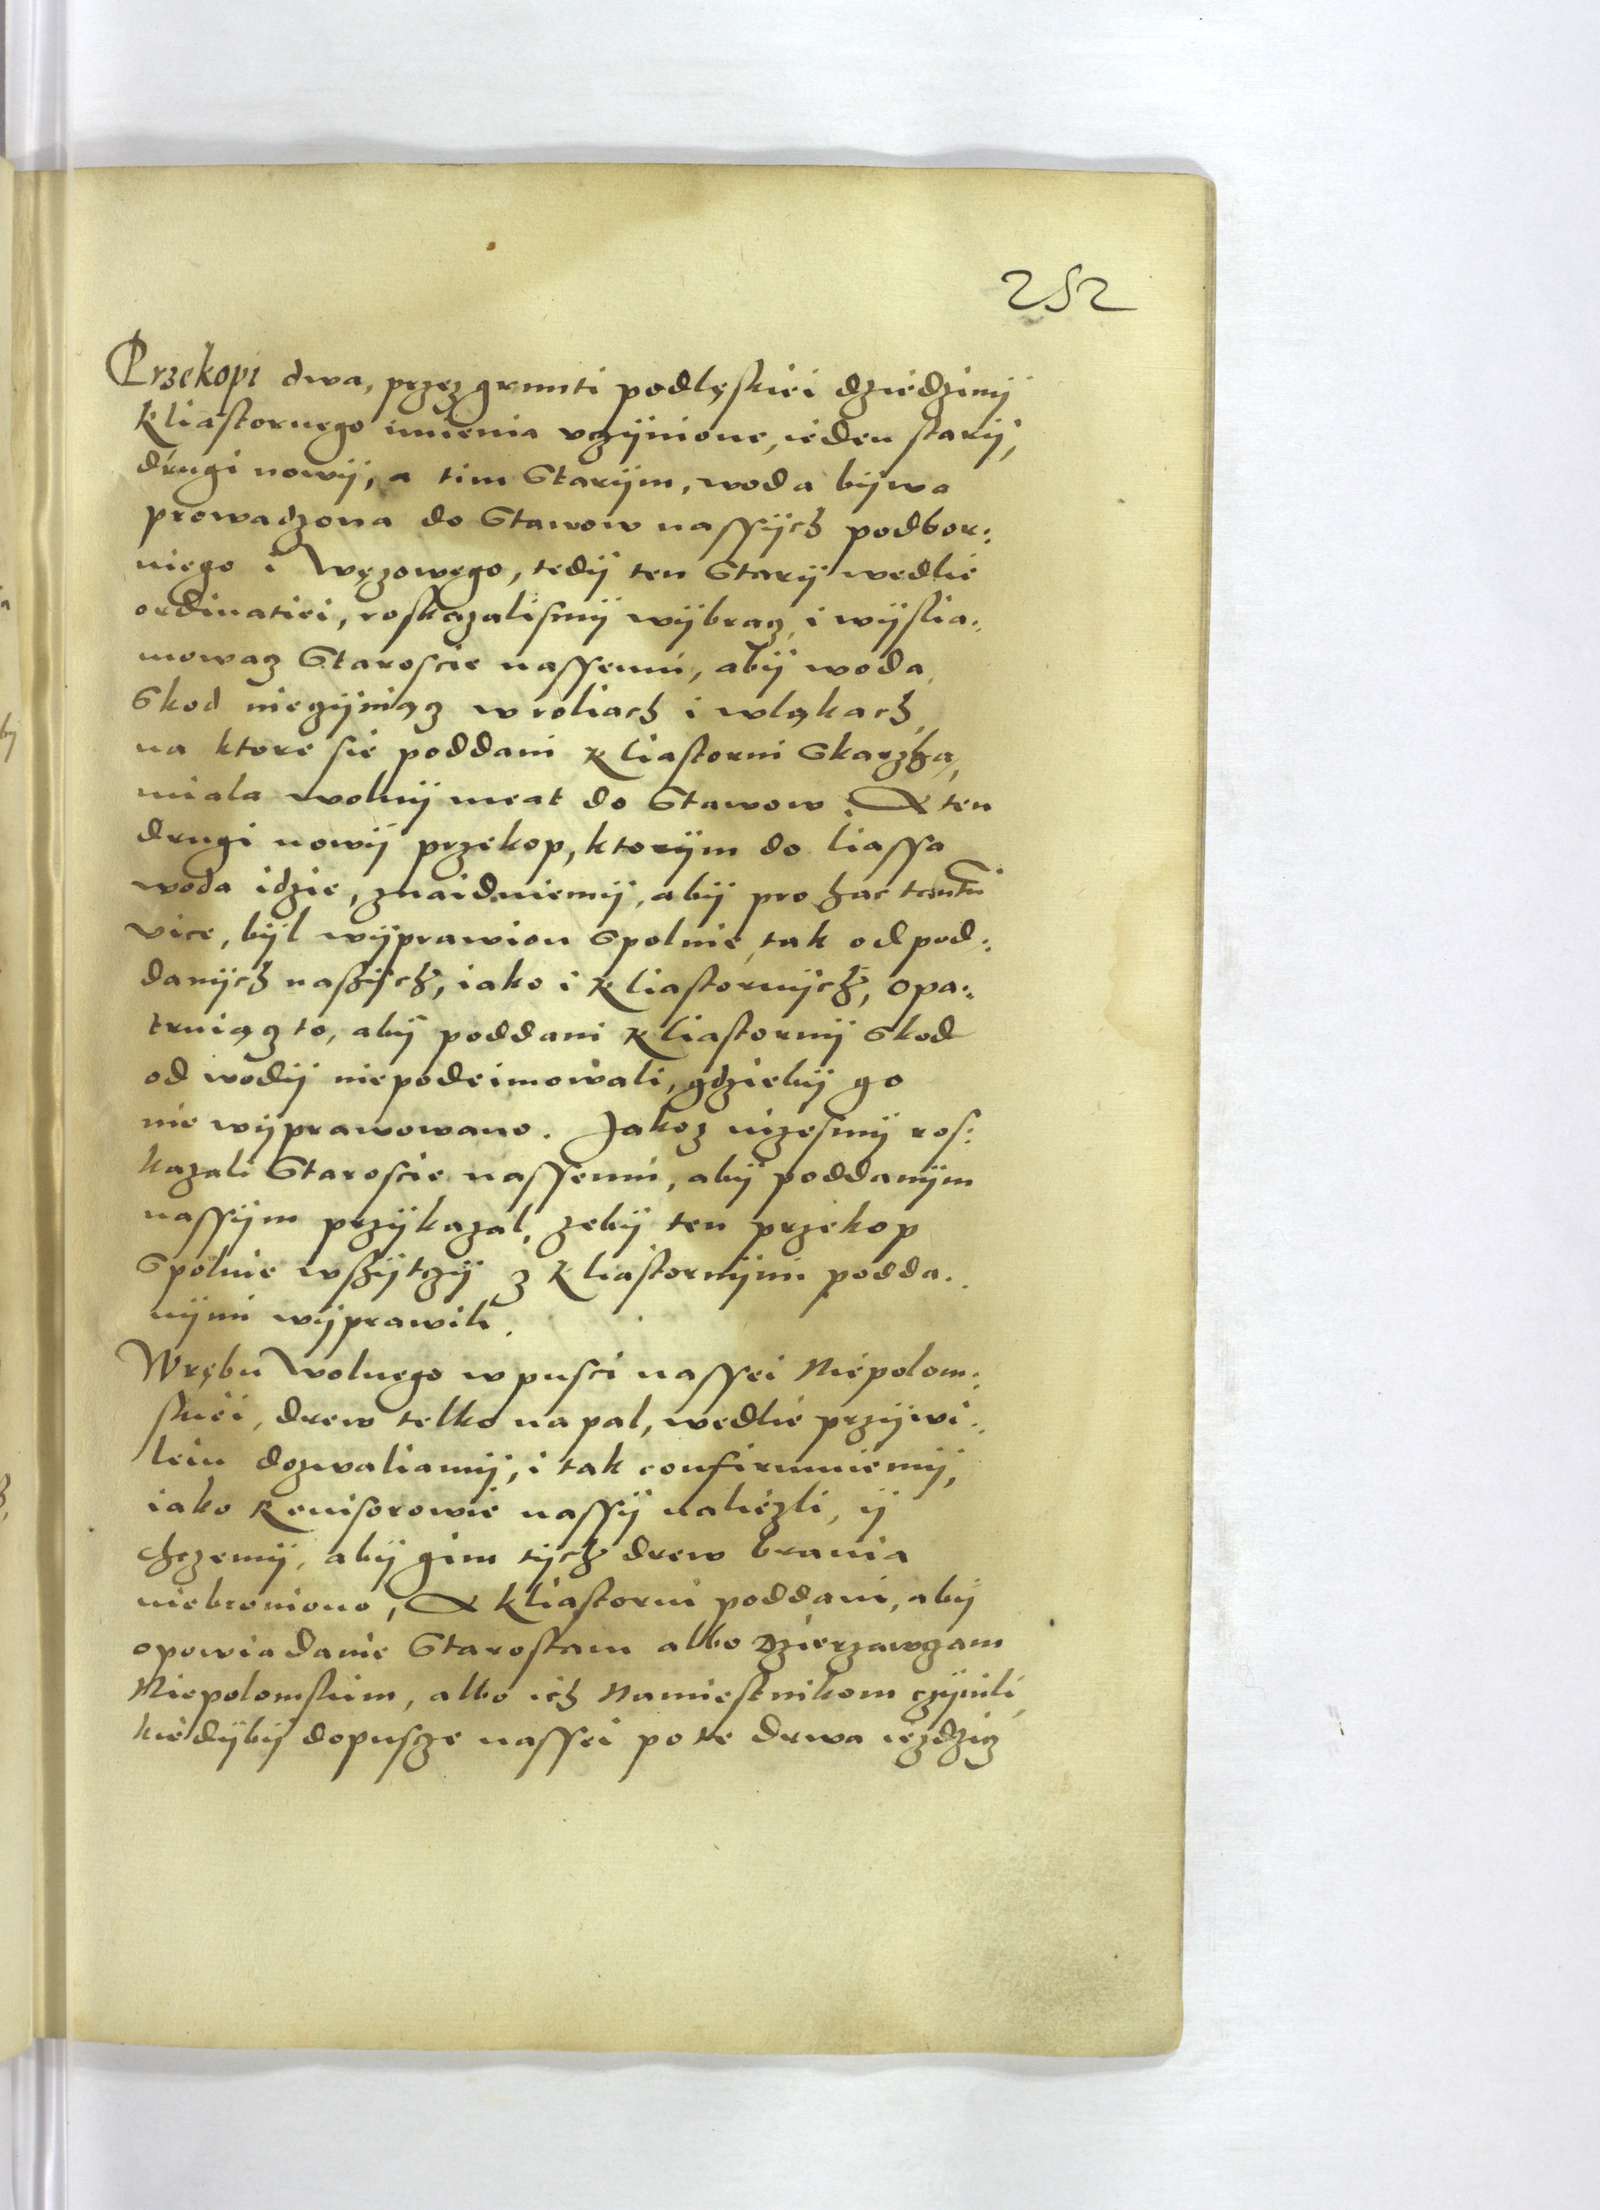 252
Przekopi dwa, przez grunti podlęskiei dziedzinÿ
Kliastornego imienia vczÿnione, ieden starÿ,
drugi nowÿ, a tim Starÿm, woda bÿwa
prowadzona do Stawow nassÿch podbor:
niego i Węzowego, tedÿ ten Starÿ wedlie
ordinatiei, roskazalismÿ wÿbracz, i wÿslia:
mowacz Staroscie nassemu, abÿ woda
Skod nieczÿniącz w roliach i wląkach,
na ktore sie poddani Kliastorni Skarzhą,
miala wolnÿ meat do Stawow. A ten
drugi nowÿ przekop, ktorÿm do liassa
woda idzie, znaiduiemÿ, abÿ pro hac tantū
vice, bÿl wÿprawion Spolnie, tak od pod:
danÿch naszÿch, iako i Kliastornÿch, opa:
truiącz to, abÿ poddani Kliastornÿ Skod
od wodÿ niepodeimowali, gdziebÿ go
nie wÿprawowano. Jakoz iuzesmÿ ros:
kazali Staroscie nassemu, abÿ poddanÿm
nassÿm przÿkazal, zebÿ ten przekop
Spolnie wszÿtczÿ z Kliastornÿmi podda:
nÿmi wÿprawili.
Wrębu Wolnego w pusci nassei Niepolom:
skiei, drew telko na pal, wedlie przÿwi:
leiu dozwaliamÿ, i tak confirmuiemÿ,
iako Reuisorowie nassÿ naliezli, ÿ
chczemÿ, abÿ gim tÿch drew brania
niebroniono, A Kliastorni poddani, abÿ
opowiadanie Starostam albo Dzierzawczam
Niepolomskim, albo ich Namiestnikom czÿnili,
kiedÿbÿ dopuscze nassei po te drwa iezdzicz